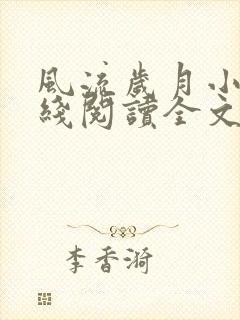 風流歲月小
綫閱讀全文
李香漪